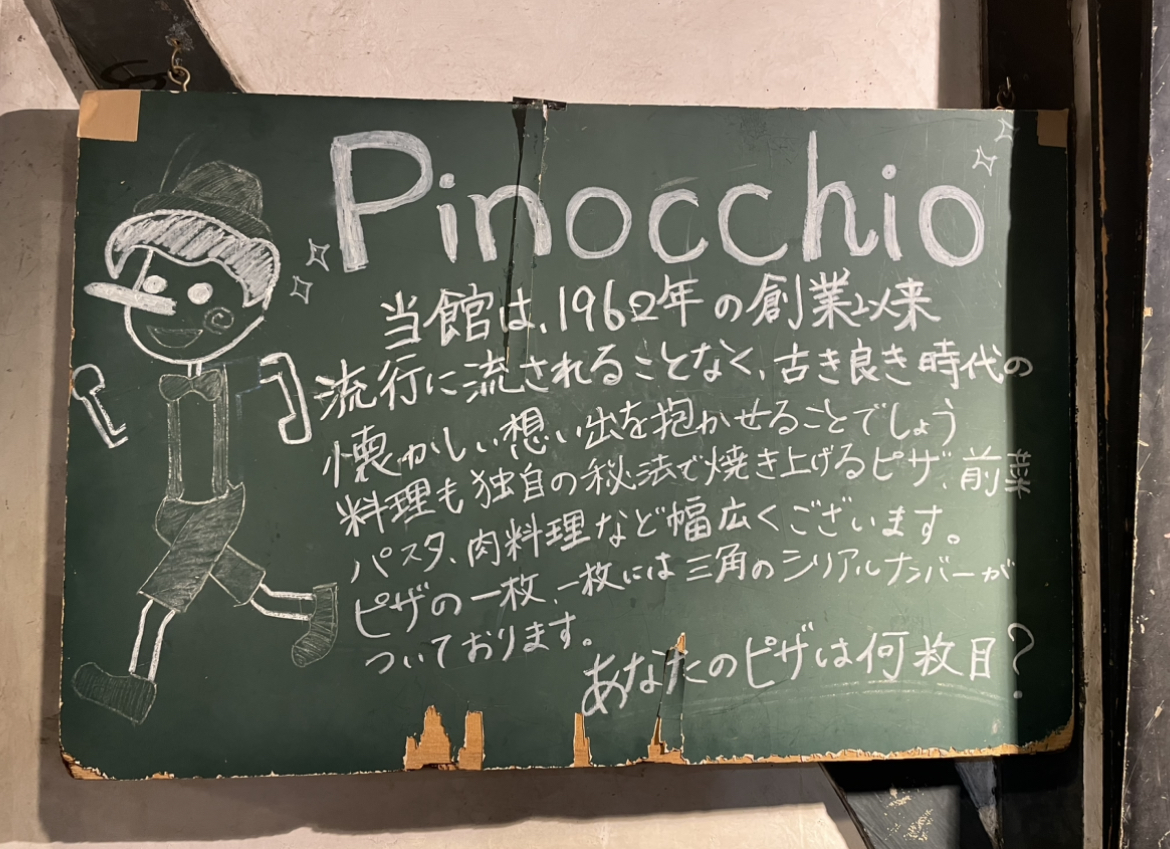 Pinocchio
当館は、1962年の創業以来
流行に流されることなく、古き良き時代の
懐かしい想い出を抱かせることでしょう
料理も独自の秘法で焼き上げるピザ、前菜
パスタ、肉料理など幅広くございます。
ピザの一枚、一枚には三角のシリアルナンバーが
ついております。
あなたのピザは何枚目?